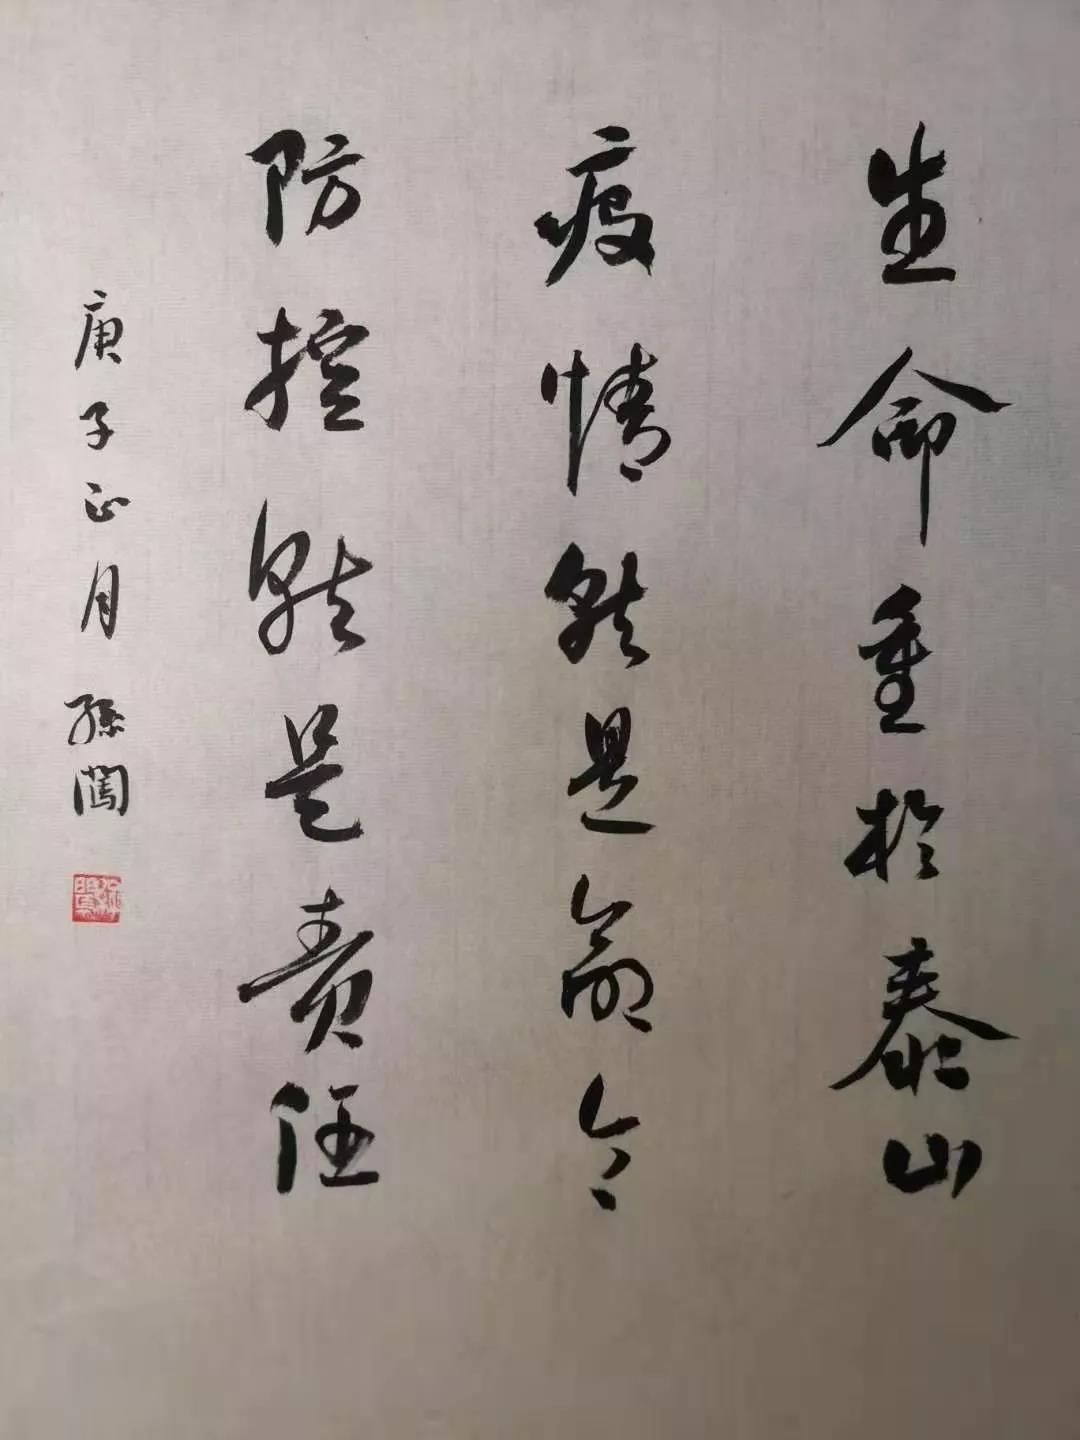 生命重於泰山
疫情就是命令
防控就是责任
庚子正月 孫闖